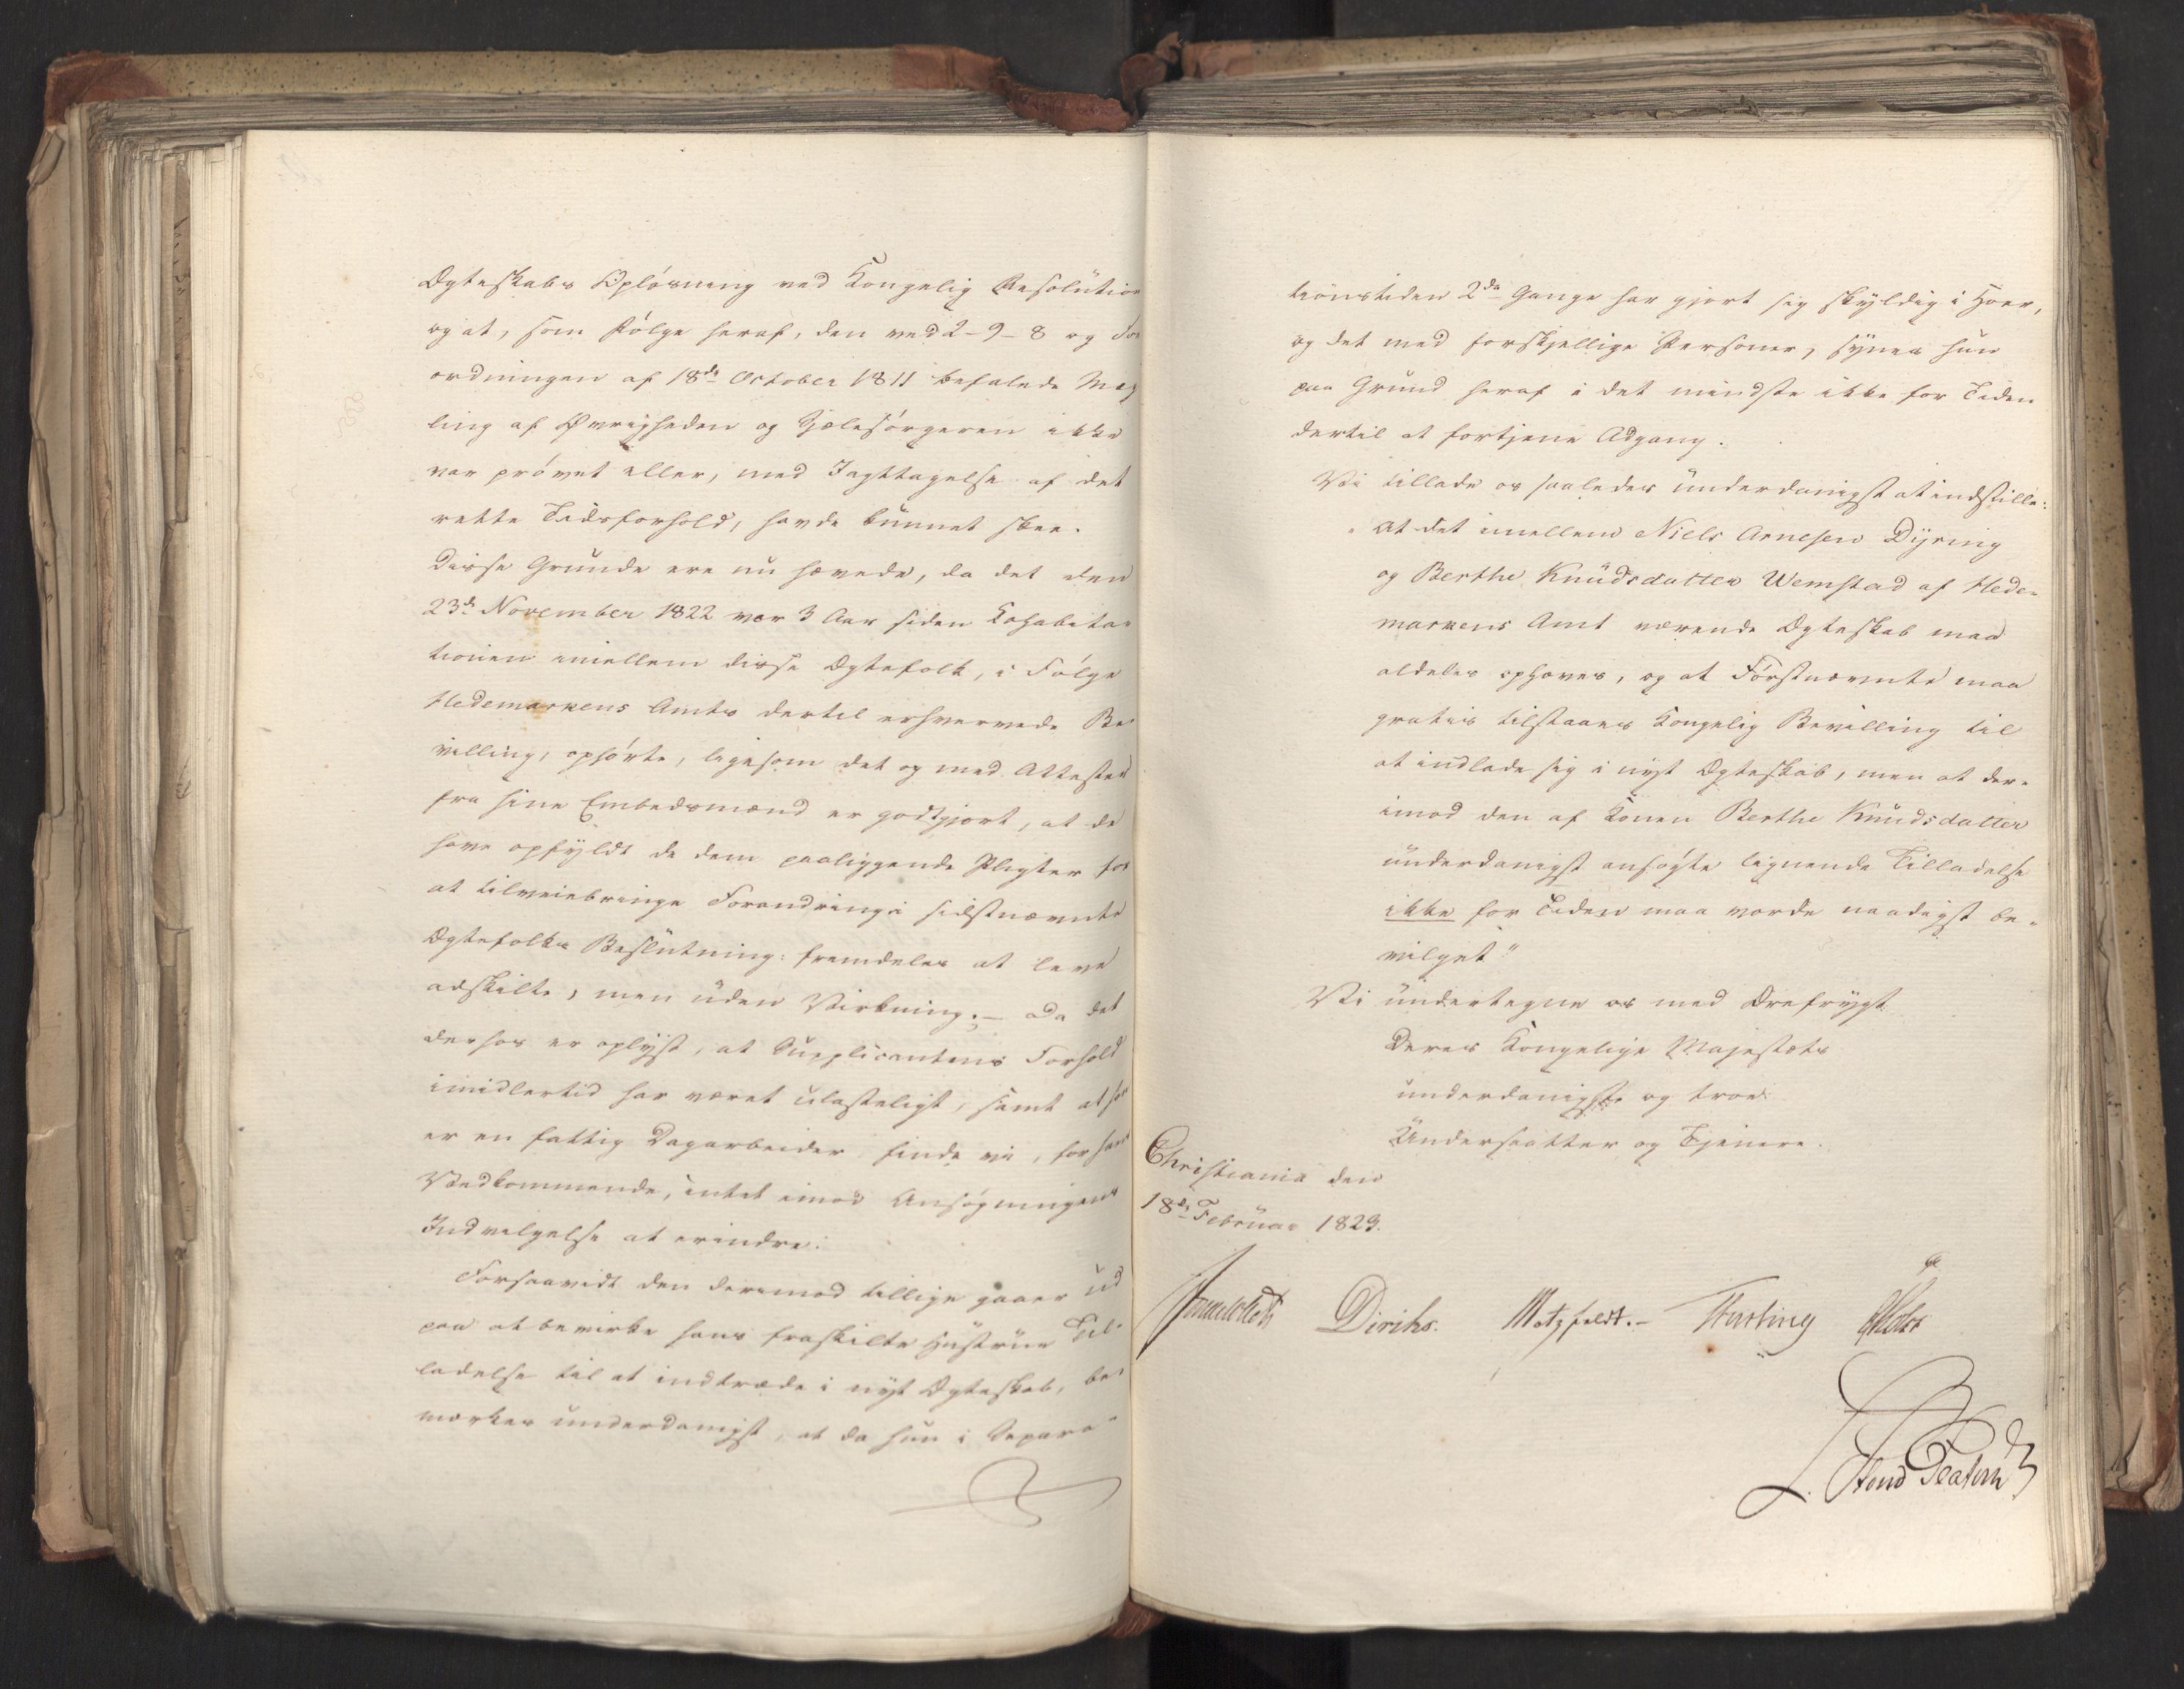 Ægteskabs Opløsning ved Kongelig Resolution
og at, som Følge heraf, den ved 2-9-8 og For
ordningen af 18de October 1811 befalede Mæg
ling af Øvrigheden og Sjælesørgeren ikke
var prøvet eller, med Iagttagelse af det
rette Tidsforhold, havde kunnet skee.
Disse Grunde ere nu hævede, da det den
23de November 1822 var 3 Aar siden Cohabita-
tionen imellem disse Ægtefolk, i Følge
Hedemarkens Amts dertil erhvervede Be-
villing, ophørte, ligesom det og med Attester
fra sine Embedsmænd er godtgjort, at de
have opfyldt de dem paaliggende Pligter for
at tilveiebringe Forandring i sidstnævnte
Ægtefolks Beslutning: fremdeles at leve
adskilte, men uden Virkning; – Da det
derhos er oplyst, at Supplicantens Forhold
imidlertid har været ulasteligt, samt at han
er en fattig Dagarbeider, finde vi, for hans
Vedkommende, intet imod Ansøgningens
Indvilgelse at erindre.
Forsaavidt den derimod tillige gaaer ud
paa at bevirke hans fraskilte Hustrue Til-
ladelse til at indtræde i nyt Ægteskab, be-
mærkes underdanigst, at da hun i Separa-
tionstiden 2de Gange har gjort sig skyldig i Hoer,
og det med forskjellige Personer, synes hun
paa Grund heraf i det mindste ikke for Tiden
dertil at fortjene Adgang.
Vi tillade os saaledes underdanigst at indstille:
„At det imellem Niels Arnesen Dyring
og Berthe Knudsdatter Wemstad af Hede-
markens Amt værende Ægteskab maa
aldeles ophæves, og at Førstnævnte maa
gratis tilstaaes Kongelig Bevilling til
at indlade sig i nyt Ægteskab, men at der-
imod den af Konen Berthe Knudsdatter
underdanigst ansøgte lignende Tilladelse
ikke for Tiden maa vorde naadigst be-
vilget"
Vi undertegne os med Ærefrygt
Deres Kongelige Majestæts
underdanigste og troe
Undersaatter og Tjenere.
Christiania den
18de Februar 1823.
Diriks. Motzfeldt.–